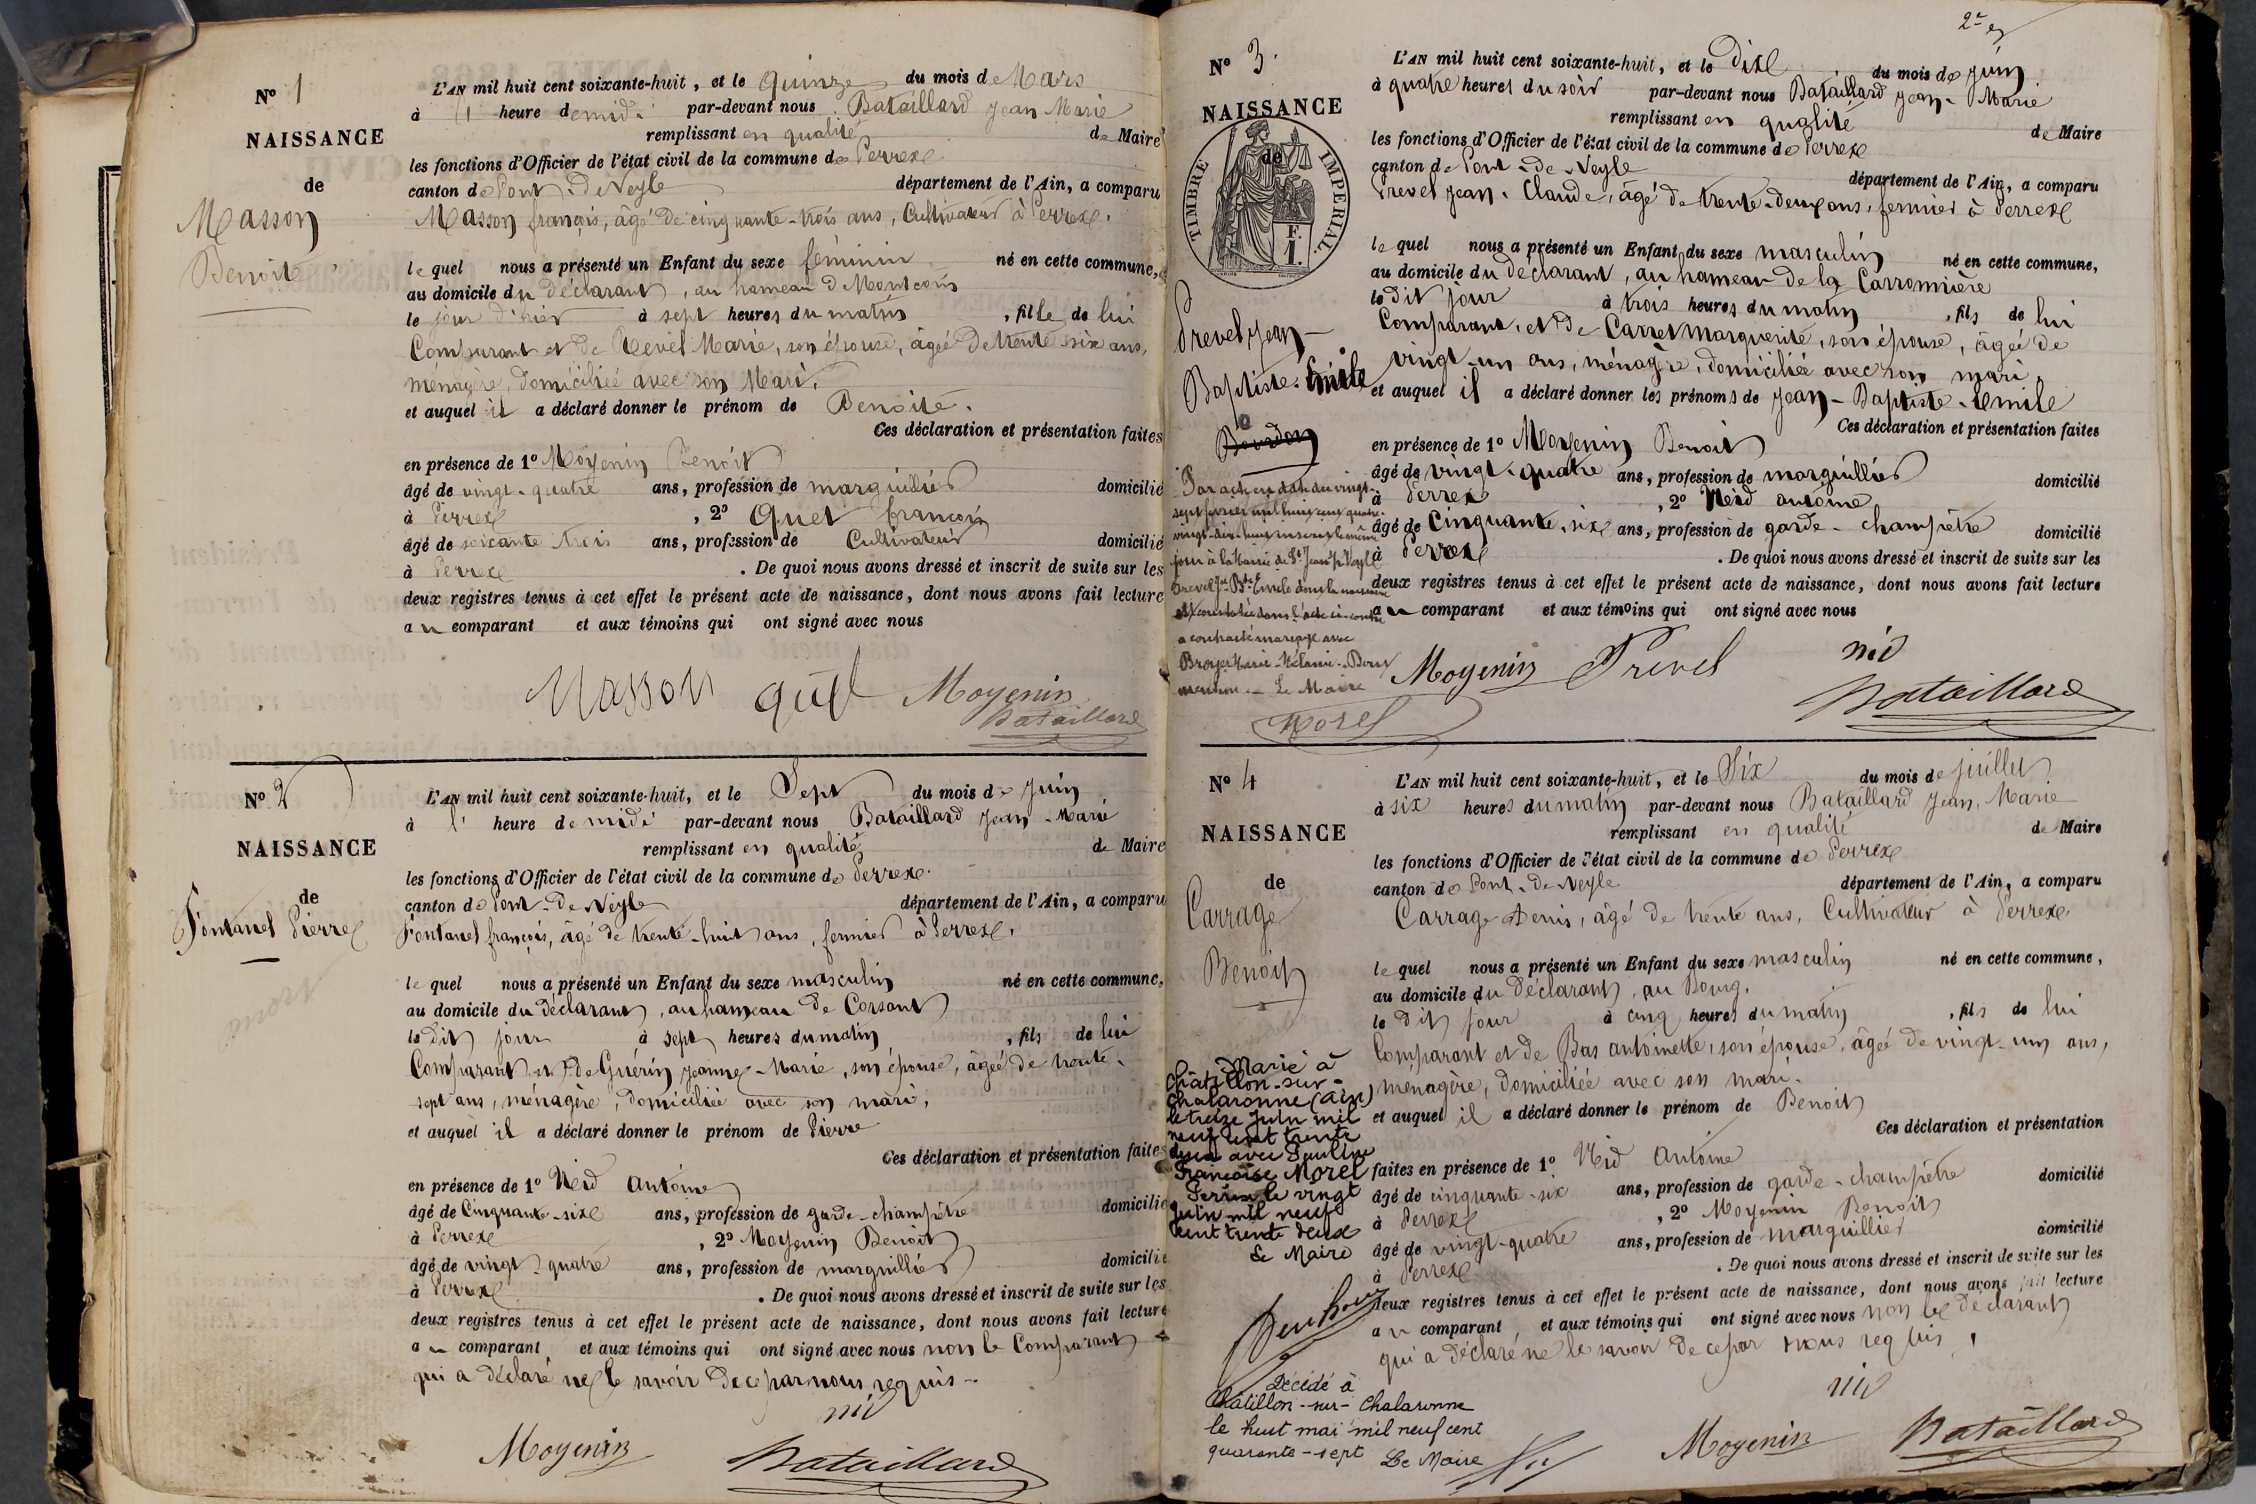 N° 1
NAISSANCE
de
Masson
Benoite
L'AN mil huit cent soixante-huit, et le quinze du mois de Mars
à heure de midi par-devant nous Bataillard Jean Marie
remplissant en qualité de Maire
les fonctions d'Officier de l'état civil de la commune de Perrex
canton de Pont-de-Veyle département de l'Ain, a comparu
Masson françois, âgé de cinquante-trois ans, Cultivateur à Perrex.
le quel nous a présenté un Enfant du sexe féminin né en cette commune,
au domicile du déclarant, au hameau de Montcoin
le jour d'hier à sept heures du matin, fille de lui
Comparant et de Marie, son épouse, âgée de trente six ans,
ménagère, domiciliée avec son Mari,
et auquel il a déclaré donner le prénom de Benoite.
Ces déclaration et présentation faites
en présence de 1° Moyenin Benoit
âgé de vingt-quatre ans, profession de marguillier domicilié
à Perrex, 2° Quet françois
âgé de soixante trois ans, profession de Cultivateur domicilié
à Perrex. De quoi nous avons dressé et inscrit de suite sur les
deux registres tenus à cet effet le présent acte de naissance, dont nous avons fait lecture
au comparant et aux témoins qui ont signé avec nous
Masson quet Moyenin
Bataillard
N° 2
NAISSANCE
de
Fontanel Pierre
L'AN mil huit cent soixante-huit, et le Sept du mois de Juin
à heure de midi par-devant nous Bataillard Jean-Marie
remplissant en qualité de Maire
les fonctions d'Officier de l'état civil de la commune de Perrex.
canton de Pont-de-Veyle département de l'Ain, a comparu
Fontanel françois, âgé de trente-huit ans, fermier à Perrex.
le quel nous a présenté un Enfant du sexe masculin né en cette commune,
au domicile du déclarant, au hameau de Corsant
le dit jour à sept heures du matin, fils de lui
Comparant et de Guérin Jeanne-Marie, son épouse, âgée de trente-
sept ans, ménagère, domiciliée avec son mari,
et auquel il a déclaré donner le prénom de Pierre
Ces déclaration et présentation faites
en présence de 1° Nid Antoine
âgé de Cinquante-six ans, profession de garde-champêtre domicilié
à Perrex, 2° Moyenin Benoit
âgé de vingt-quatre ans, profession de marguillier domicilié
à Perrex. De quoi nous avons dressé et inscrit de suite sur les
deux registres tenus à cet effet le présent acte de naissance, dont nous avons fait lecture
au comparant et aux témoins qui ont signé avec nous non le Comparant
qui a déclaré ne le savoir de ce par nous requis.-
nid
Moyenin Bataillard
N° 3.
NAISSANCE
de
TIMBRE IMPERIAL
F.
1.
Prevel Jean-
Baptiste-Emile
L'AN mil huit cent soixante-huit, et le Dix du mois de Juin
à quatre heures du soir par-devant nous Bataillard Jean-Marie
remplissant en qualité de Maire
les fonctions d'Officier de l'état civil de la commune de Perrex
canton de Pont-de-Veyle département de l'Ain, a comparu
Prevel Jean-Claude, âgé de trente-deux ans, fermier à Perrex
le quel nous a présenté un Enfant du sexe masculin né en cette commune,
au domicile du déclarant, au hameau de la Carronnière
le dit jour à trois heures du matin, fils de lui
Comparant, et de Carret Marguerite, son épouse, âgée de
vingt-un ans, ménagère, domiciliée avec son mari,
et auquel il a déclaré donner les prénoms de Jean-Baptiste-Emile
Ces déclaration et présentation faites
en présence de 1° Moyenin Benoit
âgé de vingt-quatre ans, profession de marguillier domicilié
à Perrex, 2° Nid antoine
âgé de Cinquante-six ans, profession de garde-champêtre domicilié
à Perrex. De quoi nous avons dressé et inscrit de suite sur les
deux registres tenus à cet effet le présent acte de naissance, dont nous avons fait lecture
au comparant et aux témoins qui ont signé avec nous
Par acte en date du vingt-
sept février mil huit cent quatre-
vingt-dix-huit inscrit le même
jour à la Mairie de St Jean s/ Veyle
Prevel Jn Bte Emile dont la naissance
est constatée dans l'acte ci-contre
a contracté mariage avec
Broyer Marie-Mélanie. Dont
mention. Le Maire
Morel
Moyenin Prevel nid
Bataillard
N° 4
NAISSANCE
de
Carrage
Benoit
L'AN mil huit cent soixante-huit, et le Six du mois de juillet
à six heures du matin par-devant nous Bataillard Jean-Marie
remplissant en qualité de Maire
les fonctions d'Officier de l'état civil de la commune de Perrex
canton de Pont-de-Veyle département de l'Ain, a comparu
Carrage Denis, âgé de trente ans, Cultivateur à Perrex
le quel nous a présenté un Enfant du sexe masculin né en cette commune,
au domicile du déclarant, au Bourg,
le dit jour à cinq heures du matin, fils de lui
Comparant et de Bas antoinette, son épouse, âgée de vingt-un ans,
ménagère, domiciliée avec son mari.
et auquel il a déclaré donner le prénom de Benoit
Ces déclaration et présentation
faites en présence de 1° Nid Antoine
âgé de cinquante-six ans, profession de garde-champêtre domicilié
à Perrex, 2° Moyenin Benoit
âgé de vingt-quatre ans, profession de marguillier domicilié
à Perrex. De quoi nous avons dressé et inscrit de suite sur les
deux registres tenus à cet effet le présent acte de naissance, dont nous avons fait lecture
au comparant et aux témoins qui ont signé avec nous non le déclarant
qui a déclaré ne le savoir de ce par nous requis.
Marié à
Châtillon-sur-
Chalaronne (Ain)
le treize juin mil
neuf cent trente
deux avec Pauline
Françoise Morel
Perrex le vingt
juin mil neuf
cent trente deux
Le Maire
Décédé à
Châtillon-sur-Chalaronne
le huit mai mil neuf cent
quarante-sept Le Maire
nid
Moyenin Bataillard